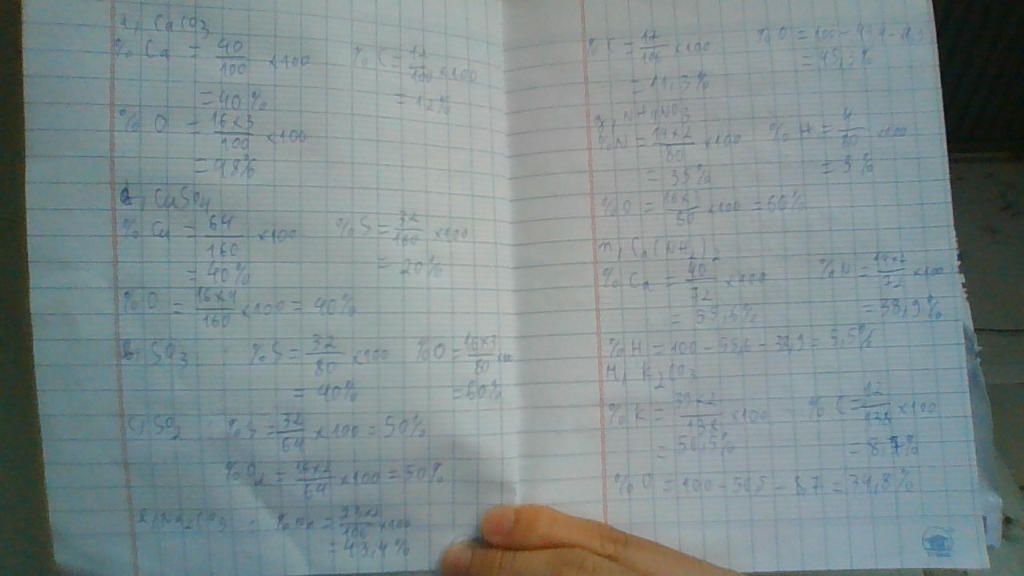 1, CaCO3
%Ca = 40/100 ×100 %C = 12/100 ×100
= 40% = 12%
%O = 16×3/100 ×100
= 48%
CuSO4
%Cu = 64/160 ×100 %S = 32/160 ×100
= 40% = 20%
%O = 16×4/160 ×100 = 40%
SO3 %S = 32/80 ×100 %O = 16×3/80
= 40% = 60%
SO2 %S = 32/64 ×100 = 50%
%O2 = 16×2/64 ×100 = 50%
Na2CO3 = 23×2/106 ×100
= 43,4%
%C = 12/106 ×100 %O = 100 -
= 11,3% = 45,3%
NH4NO3
%N = 14×2/80 ×100 %H = 4/80 ×100
= 35% =
%O = ×100 = 60%
Ca(NH2)2
%Ca = 40/72 ×100 %N = 14×2/72 ×100
= 55,6% = 38,9%
%H = 100 - 55,6 - 38,9 = 5,5%
K2CO3
%K = 39×2/138 ×100 % C = 12/138 ×100
= 56,5% = 8,7%
%O = 100 - 56,5 - 8,7 = 34,8%